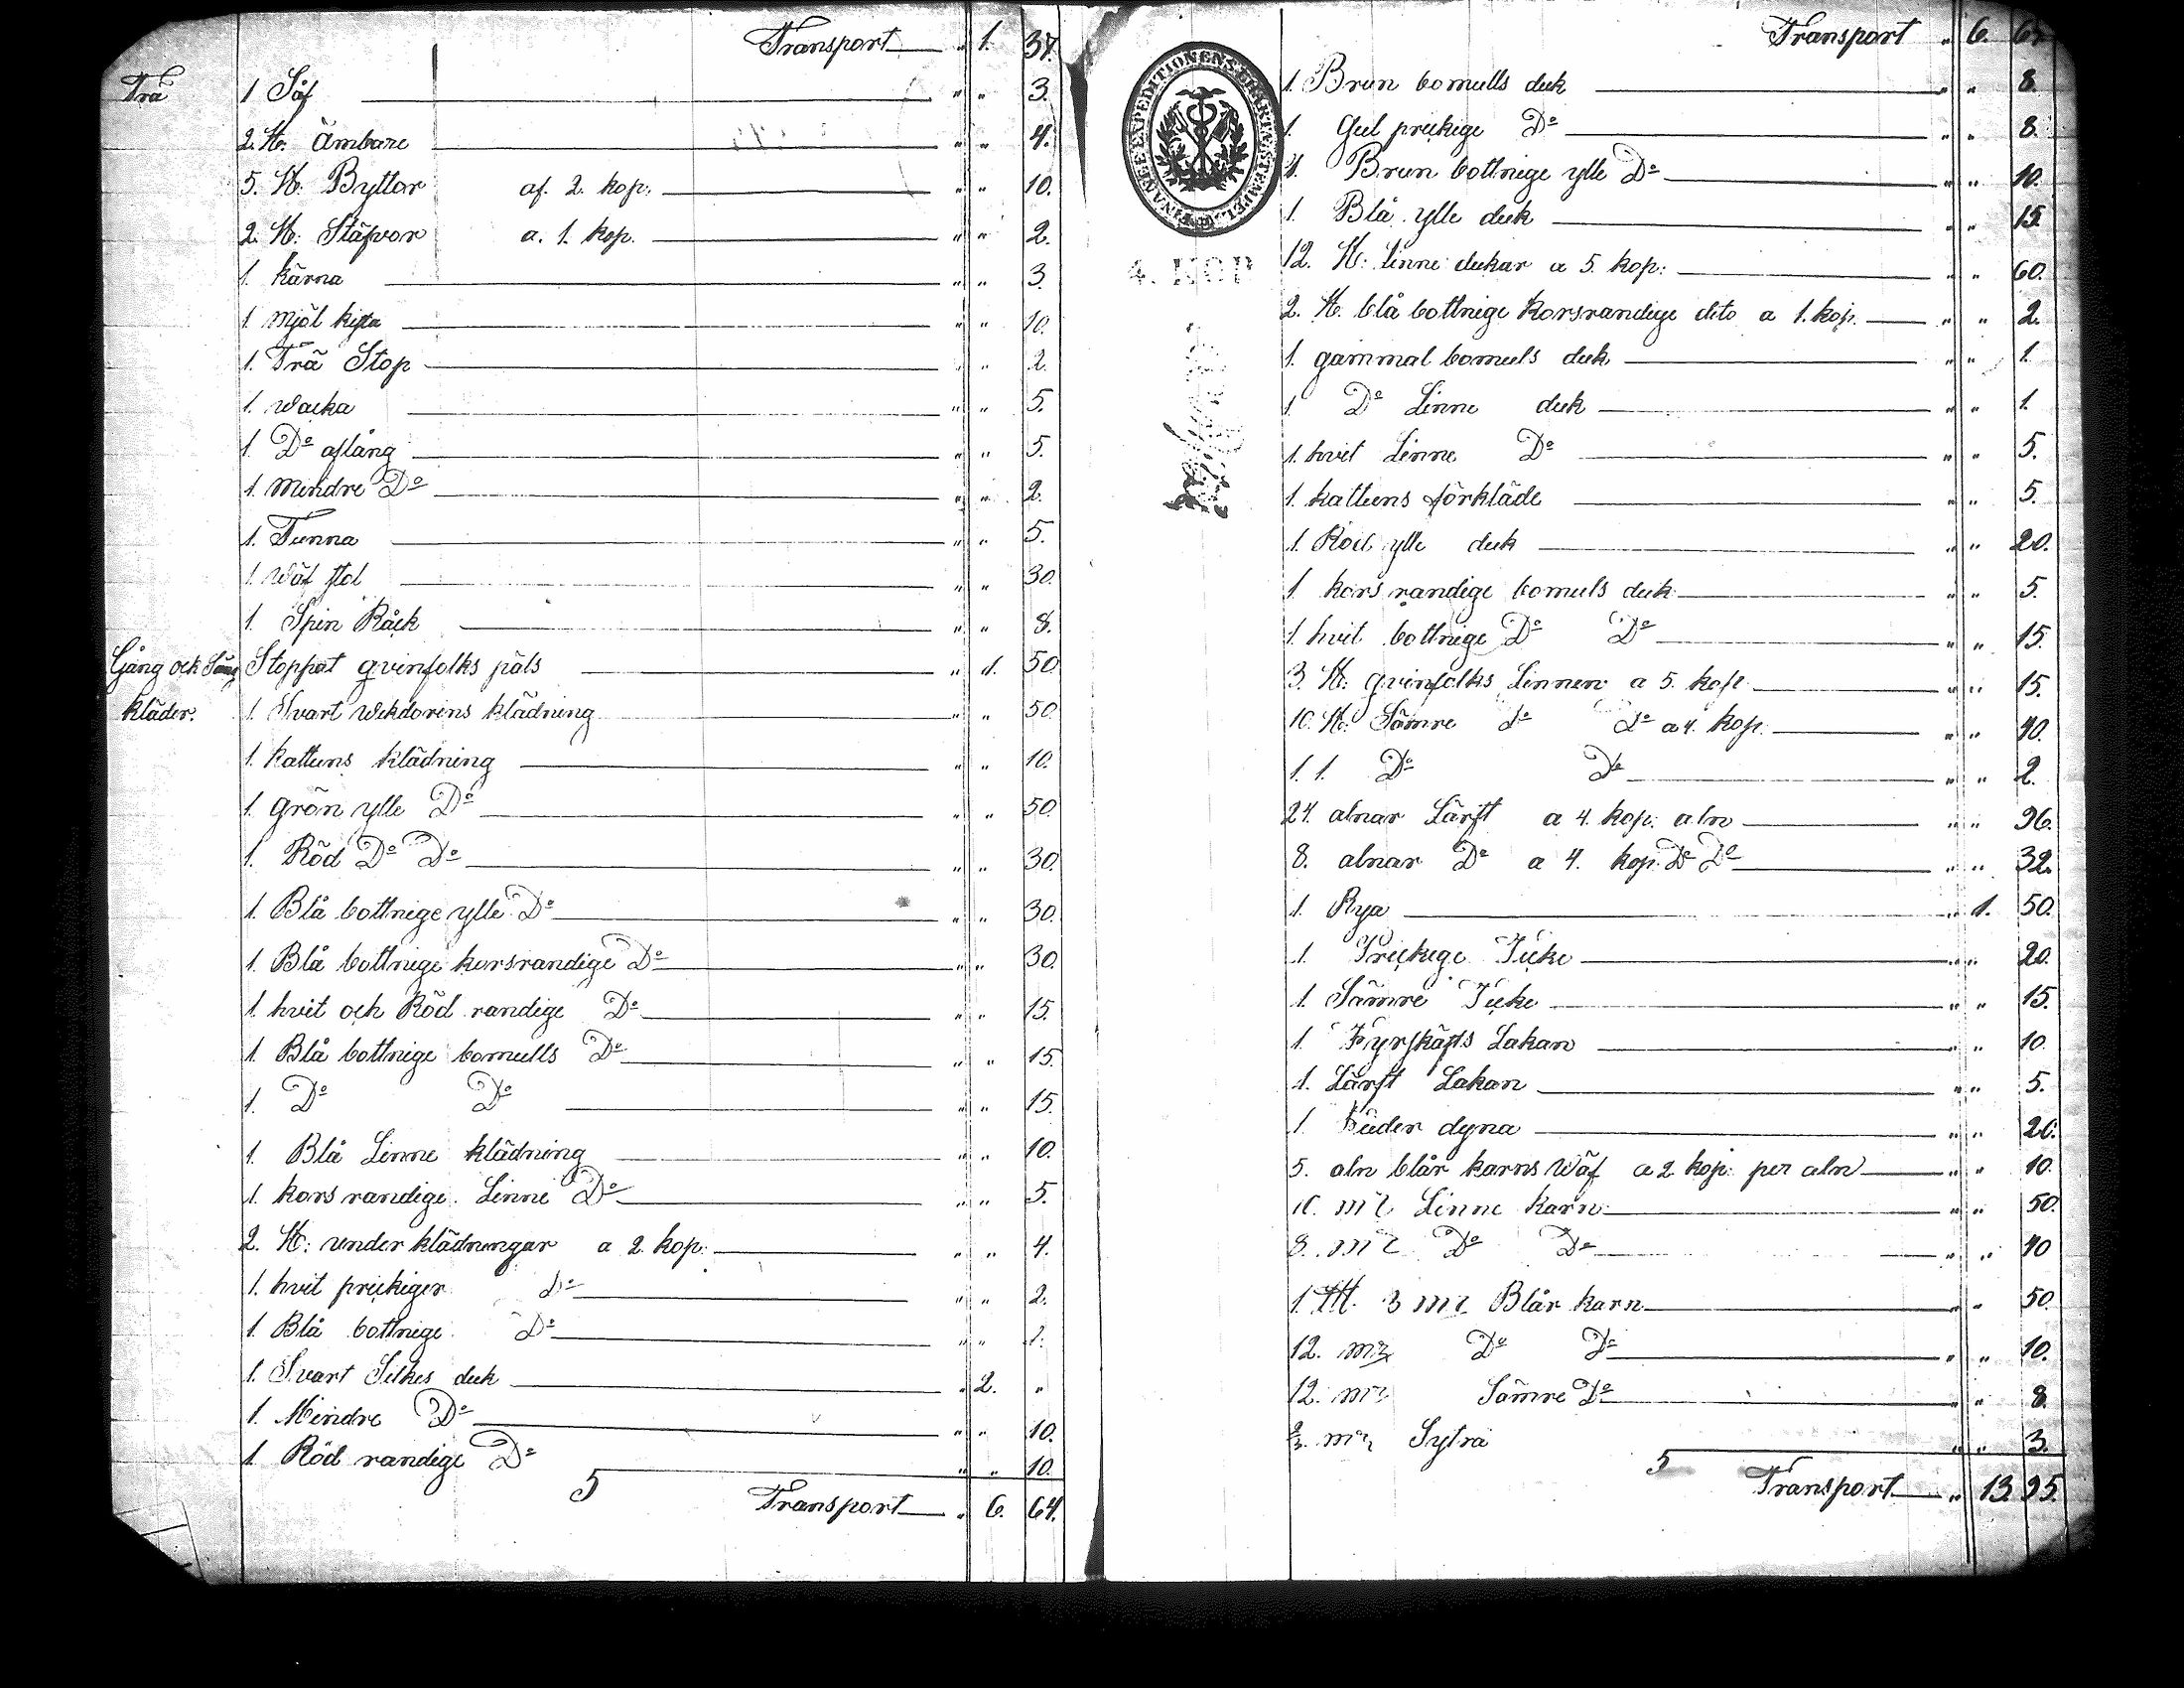 Transport „ 1. 37.
Trä 1 Såf „ „ 3.
2. St. Ämbare „ „ 4.
5. St: Byttor af. 2. kop: „ „ 10.
2. St: Stäfvor a. 1. kop. „ „ 2.
1. Kärna „ „ 3.
1. Mjöl „ „ 10.
1. Trä Stop „ „ 2.
1. Wacka „ „ 5.
1. Do aflång „ „ 5.
1. Mindre Do „ „ 2.
1. Tunna „ „ 5.
1. Wäf stol „ „ 30.
1. Spin Råck „ „ 8.
Gång och Säng Stoppat qvinfolks päls „ 1. 50.
kläder. 1. Svart klädning „ „ 50.
1. Kattuns klädning „ „ 10.
1. grön ylle Do „ „ 50.
1. Röd Do Do „ „ 30.
1. Blå bottnige ylle Do „ „ 30.
1. Blå bottnige korsrandige Do „ „ 30.
1. hvit och Röd randige Do „ „ 15.
1. Blå bottnige bomulls Do „ „ 15.
1. Do Do „ „ 15.
1. Blå Linne klädning „ „ 10.
1. kors randige Linne Do „ „ 5.
2. St: under klädningar a 2 kop: „ „ 4.
1. hvit prickiger Do „ „ 2.
1. Blå bottnige Do „ „ 1.
1. Svart Silkes duk „ 2. „
1. Mindre Do „ „ 10.
1. Röd randige Do „ „ 10.
5 Transport „ 6. 64.
FINANCEEXPEDITIONENS CHARTÆSTEMPEL
4. KOP
Transport „ 6. 64.
1. Brun bomulls duk „ „ 8.
1. Gul prickige Do „ „ 8.
1. Brun bottnige ylle Do „ „ 10.
1. Blå ylle duk „ „ 15.
12. St: linne dukar a 5. kop: „ „ 60.
2. St. blå bottnige korsrandige dito a 1. kop. „ „ 2.
1. gammal bomuls duk „ „ 1.
1. Do Linne duk „ „ 1.
1. hvit Linne Do „ „ 5.
1. kattuns förkläde „ „ 5.
1. Röd ylle duk „ „ 20.
1 kors randige bomuls duk „ „ 5.
1. hvit bottnige Do Do „ „ 15.
3. St: qvinfolks Linnen a 5. kop „ „ 15.
10. St: Sämre Do Do a 4. kop. „ „ 40.
1. 1. Do Do „ „ 2.
24. alnar Lärft a 4. kop: aln „ „ 96.
8. alnar Do a 4. kop. Do Do „ „ 32.
1. Rya „ 1. 50.
1. Prickige Täcke „ „ 20.
1. Sämre Täcke „ „ 15.
1. Fyrskäfts Lakan „ „ 10.
1. Lärft Lakan „ „ 5.
1. dyna „ „ 20.
5. aln blår karns Wäf a 2 kop: per aln „ „ 10.
10. Linne Karn „ „ 50.
8. Do Do „ „ 40
1. Blår karn „ „ 50.
12. Do Do „ „ 10.
12. Sämre Do „ „ 8.
„ „ 3.
5 Transport „ 13. 95.